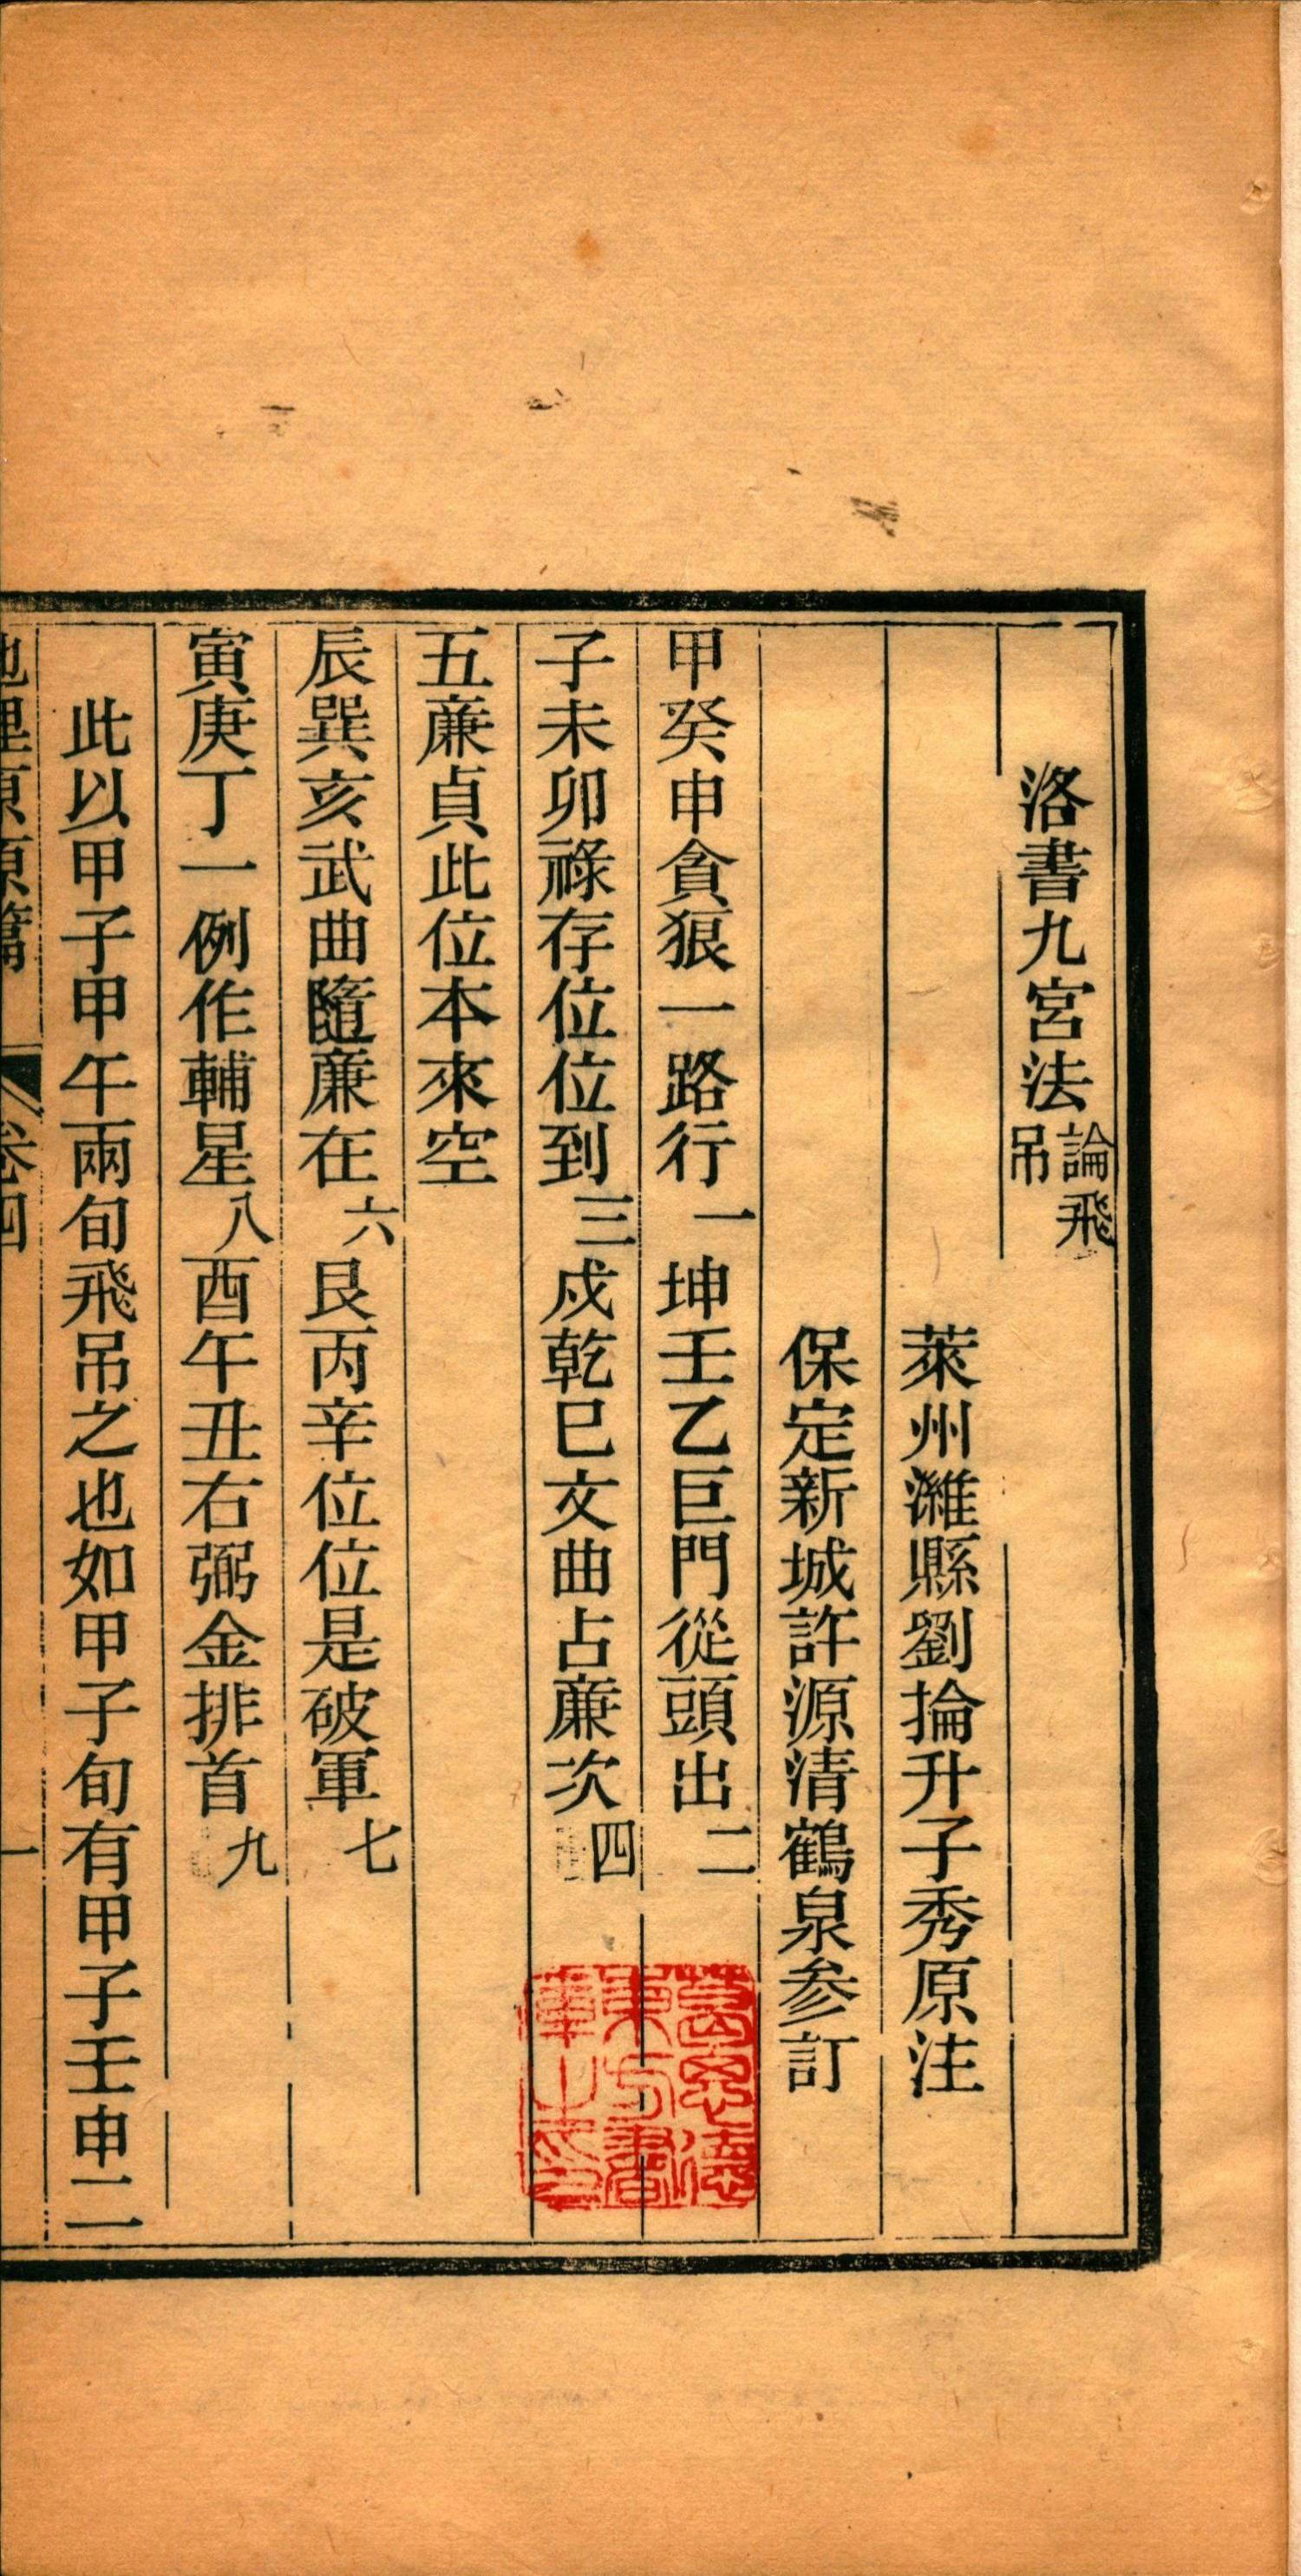 洛書九宮法論飛吊
萊州濰縣劉掄升子秀原注
保定新城許源清鶴泉參訂
甲癸申貪狼一路行一坤壬乙巨門從頭出二
子未卯祿存位位到三戍乾巳文曲占廉次四
五廉貞此位本來空
辰巽亥武曲隨廉在六艮丙辛位位是破軍七
寅庚丁一例作輔星八酉午丑右弼金排首九
此以甲子甲午兩旬飛吊之也如甲子旬有甲子壬申二
卷四
一
葛思德東方書庫之印